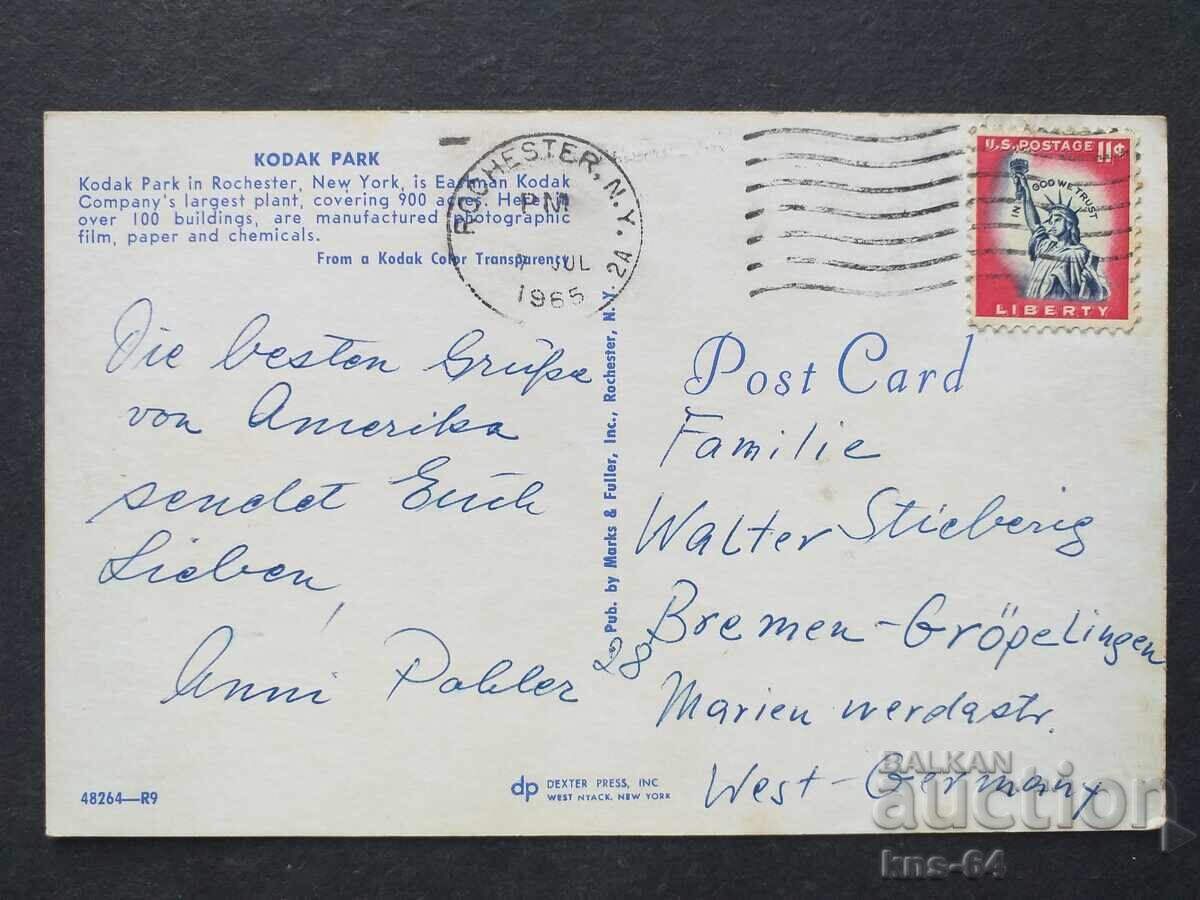 KODAK PARK
Kodak Park in Rochester, New York, is Eastman Kodak
Company's largest plant, covering 900 acres. Here, in
over 100 buildings, are manufactured photographic
film, paper and chemicals.
From a Kodak Color Transparency
ROCHESTER, N.Y. 2A
PM
JUL
1965
U.S. POSTAGE 11¢
IN GOD WE TRUST
LIBERTY
Die besten Grüße
von Amerika
sendet Euch
Lieben,
Anni Pohler
Pub. by Marks & Fuller, Inc., Rochester, N. Y.
Post Card
Familie
Walter Stieberig
28 Bremen-Gröpelingen
Marien werdastr.
West-Germany
48264—R9
dp DEXTER PRESS, INC.
WEST NYACK, NEW YORK
BALKAN
auction
kns-64